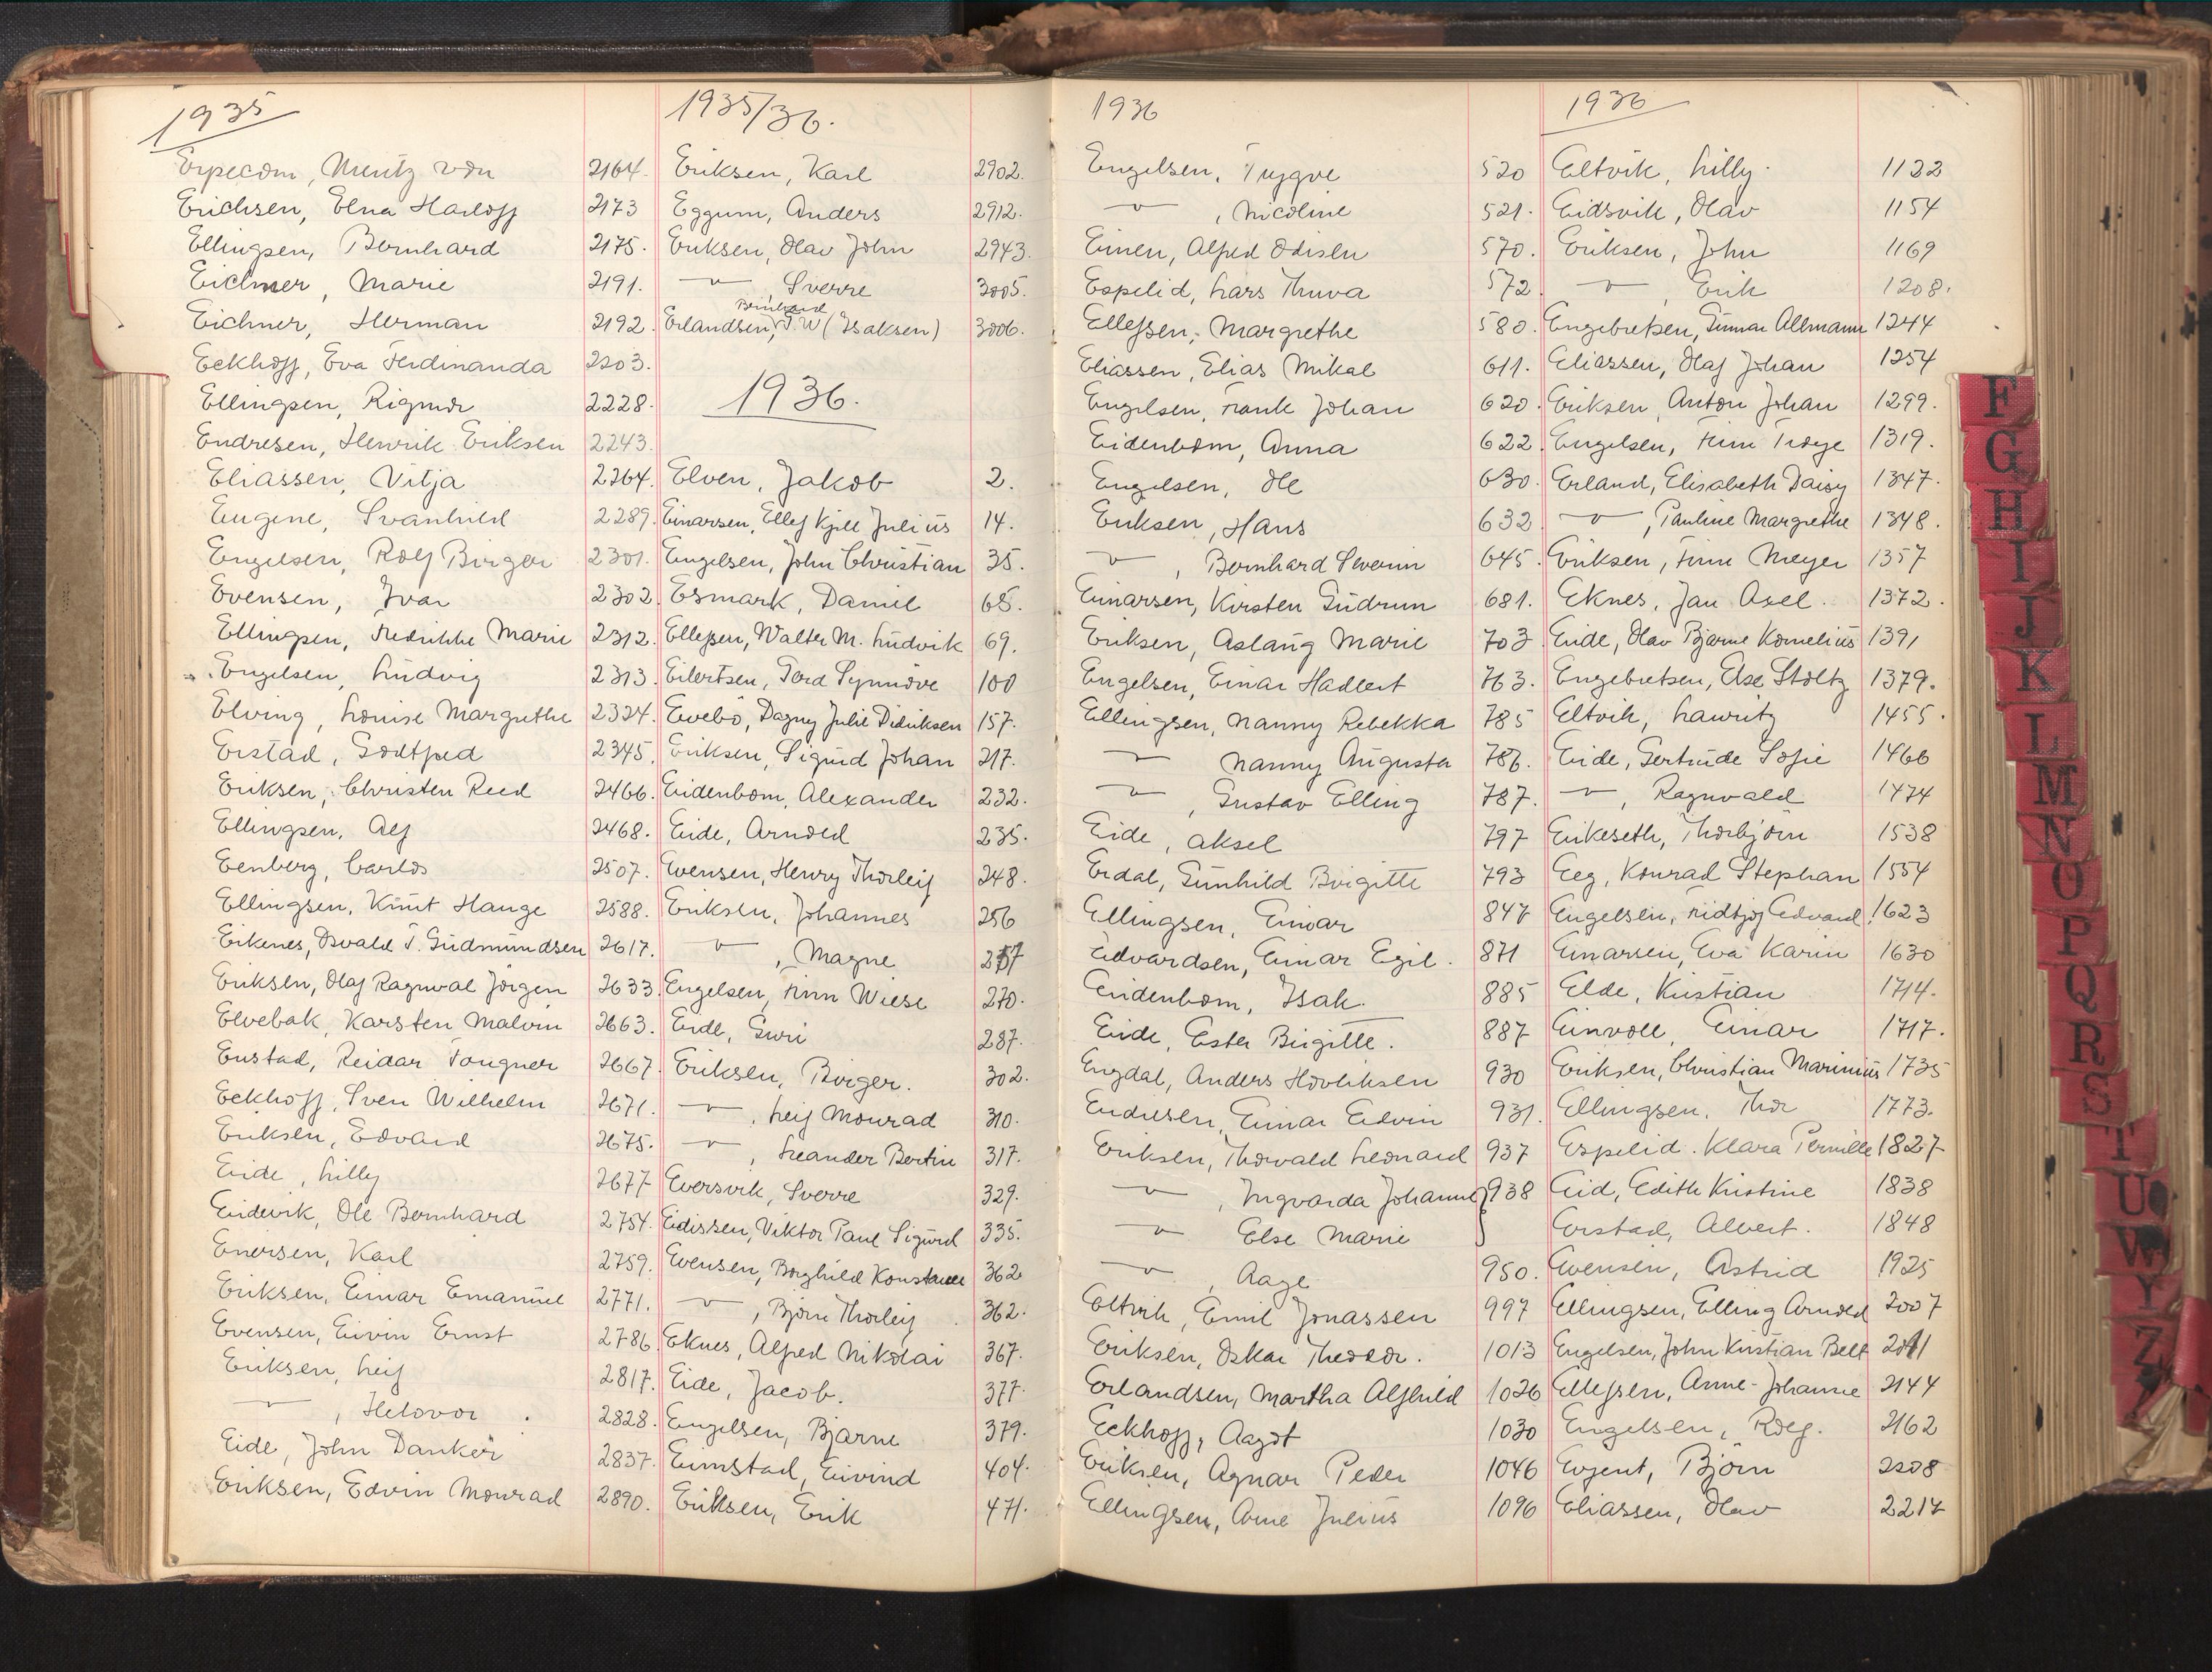 1935
Erpecom, Mentz von 2164.
Erichsen, Elna Harloff 2173
Ellingsen, Bernhard 2175.
Eichner, Marie 2191.
Eichner, Herman 2192.
Eckhoff, Eva Ferdinanda 2203.
Ellingsen, Rigmor 2228.
Endresen, Henrik Eriksen 2243.
Eliassen, Vitja 2264.
Eugene, Svanhild 2289.
Engelsen, Rolf Birger 2301.
Evensen, Ivar 2302.
Ellingsen, Fredrikke Marie 2312.
Engelsen, Ludvig 2313.
Elving, Louise Margrethe 2324.
Erstad, Godtfred 2345.
Eriksen, Christen Reed 2466.
Ellingsen, Alf 2468.
Eenberg, Carlos 2507.
Ellingsen, Knut Hauge 2588.
Eikenes, Osvald T. Gudmundsen 2617.
Eriksen, Olaf Ragnval Jørgen 2633.
Elvebak, Karsten Malvin 2663.
Enstad, Reidar Tougner 2667.
Eckhoff, Sven Wilhelm 2671.
Eriksen, Edvard 2675.
Eide, Lilly 2677
Eidevik, Ole Bernhard 2754.
Enersen, Karl 2759.
Eriksen, Einar Emanuel 2771.
Evensen, Eivin Ernst 2786.
Eriksen, Leif 2817.
—"—, Helovor. 2828.
Eide, John Danker 2837.
Eriksen, Edvin Monrad 2890.
1935/36.
Eriksen, Karl 2902.
Eggum, Anders 2912.
Eriksen, Olav John 2943.
—"—, Sverre 3005.
Bernhard
Erlandsen, T.W (Isaksen) 3006.
1936.
Elven, Jakob 2.
Einarsen, Ellef Kjell Julius 14.
Engelsen, John Christian 35.
Esmark, Daniel 65.
Ellefsen, Walter M. Ludvik 69.
Eilertsen, Tord Synnøve 100
Evebø, Dagny Julie Didriksen 157.
Eriksen, Sigurd Johan 217.
Eidenbom, Alexander 232.
Eide, Arnold 235.
Evensen, Henry Thorleif 248.
Eriksen, Johannes 256
—"—, Magne 257
Engelsen, Finn Wiese 270.
Eide, Guri 287.
Eriksen, Birger. 302.
—"—, Leif Monrad 310.
—"—, Leander Bertin 317.
Eversvik, Sverre 329.
Eidissen, Viktor Paul Sigurd 335.
Evensen, Borghild Konstanse 362
—"—, Bjørn Thorleif 362.
Eknes, Alfred Nikolai 367.
Eide, Jacob. 377.
Engelsen, Bjarne 379.
Eimstad, Eivind 404.
Eriksen, Erik 471.
1936
Engelsen, Trygve 520
—"—, Nicoline 521.
Einen, Alfred Odisen 570.
Espelid, Lars Thuva 572
Ellefsen, Margrethe 580.
Eliassen, Elias Mikal 611.
Engelsen, Frank Johan 620.
Eidenbom, Anna 622.
Engelsen, Ole 630.
Eriksen, Hans 632
—"—, Bernhard Severin 645.
Einarsen, Kirsten Gudrun 681.
Eriksen, Aslaug Marie 703.
Engelsen, Einar Hadlert 763.
Ellingsen, Nanny Rebekka 785
—"— Nanny Augusta 786.
—"—, Gustav Elling 787.
Eide, Aksel 797
Erdal, Gunhild Birgitte 793
Ellingsen, Einar 847
Edvardsen, Einar Egil. 871
Eidenbom, Isak. 885
Eide, Ester Birgitte. 887
Engdal, Anders Hovliksen 930
Endresen, Einar Edvin 931.
Eriksen, Thorvald Leonard 937
—"—, Ingvarda Johanne } 938
—"— Else Marie
—"—, Aage 950.
Eltvik, Emil Jonassen 997
Eriksen, Oskar Theodor. 1013
Erlandsen, Martha Alfhild 1026
Eckhoff, Aagot 1030
Eriksen, Agnar Peder 1046
Ellingsen, Arne Julius 1096
1936
Eltvik, Lilly. 1122
Eidsvik, Olav 1154
Eriksen, John 1169
—"—, Erik 1208.
Engebretsen, Gunnar Allmann 1244
Eliassen, Olaf Johan 1254
Eriksen, Anton Johan 1299.
Engelsen, Finn Troye 1319.
Erland, Elisabeth Daisy 1347.
—"—, Pauline Margrethe 1348.
Eriksen, Finn Meyer 1357
Eknes, Jan Axel. 1372.
Eide, Olav Bjarne Kornelius 1391
Engebretsen, Else Stoltz 1379.
Eltvik, Lauritz 1455.
Eide, Gertrude Sofie 1466
—"—, Ragnvald 1474
Eikeseth, Thorbjørn 1538
Eeg, Konrad Stephan 1554
Engelsen, Fridtjof Edvard 1623
Einarsen, Eva Karin 1630
Elde, Kristian 1714.
Einvoll, Einar 1717.
Eriksen, Christian Marinius 1735
Ellingsen, Thor 1773.
Espelid. Klara Pernille 1827
Eid, Edith Kristine 1838
Erstad, Albert. 1848
Evensen, Astrid 1925
Ellingsen, Elling Arnold 2007
Engelsen, John Kristian Belt 2011
Ellefsen, Anne-Johanne 2144
Engelsen, Rolf. 2162
Evjent, Bjørn 2208
Eliassen, Olav 2217
F
G
H
I
J
K
L
M
N
O
P
Q
R
S
T
U
W
Y
Z